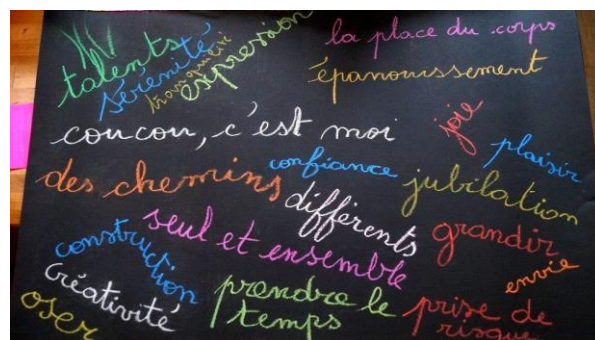 talents
sérénité
tranquillité
expression
la place du corps
épanouissement
coucou, c'est moi
joie
plaisir
confiance
des chemins
différents
jubilation
seul et ensemble
grandir
construction
envie
créativité
oser
prendre le
temps
prise de
risque